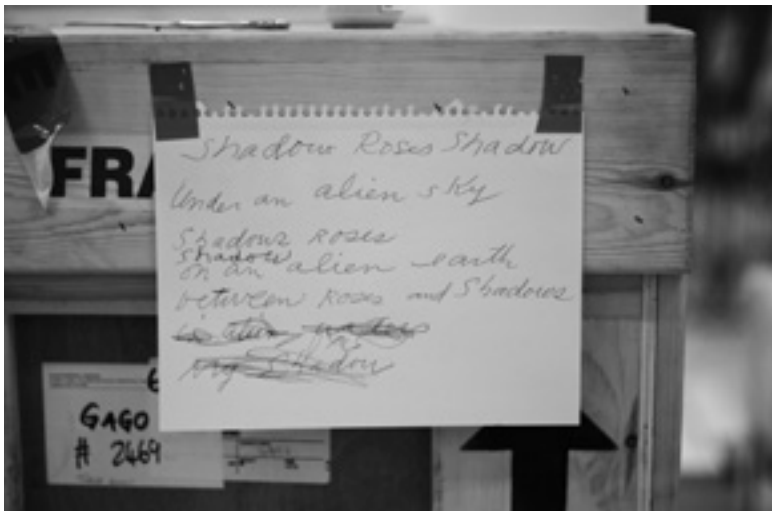 Shadow Roses Shadow
Under an alien sky
Shadows Roses
Shadow
on an alien earth
between Roses and Shadows
Shadow
FRA
GAGO
# 2469